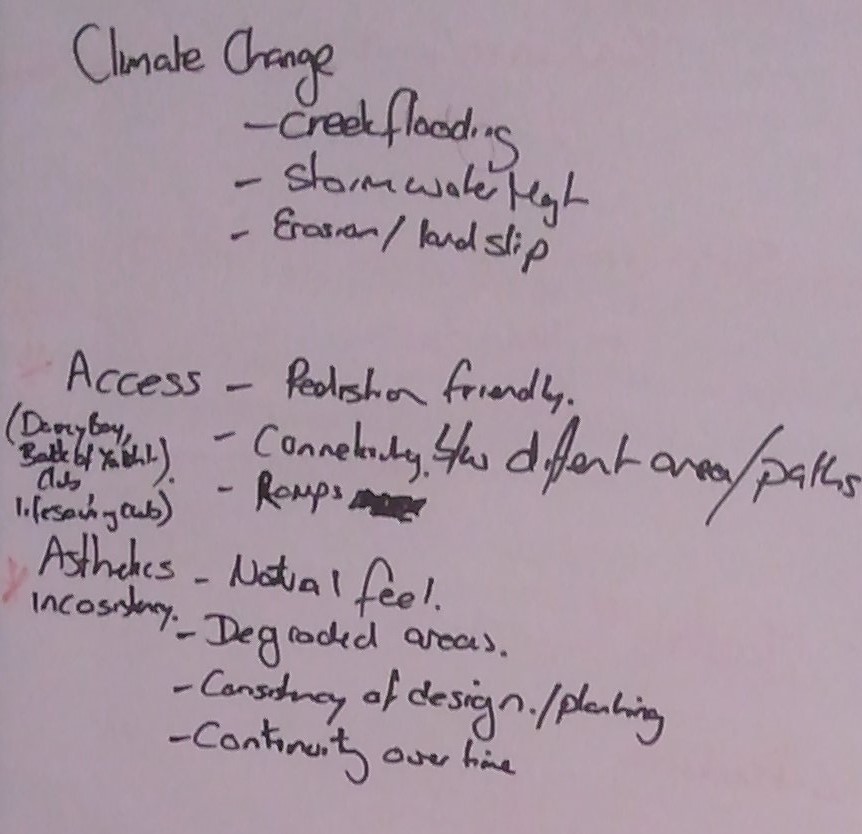 Climate Change
- Creek flooding
- Stormwater Mgt
- Erosion / land slip
Access - Pedestrian friendly.
(Dancy Bay,
- Connectivity b/w different area/paths
Back of Yacht).
Club
- Ramps
lifesaving club)
Asthetics - Natural feel.
Incosistency.
- Degraded areas.
- Consistency of design./planting
- Continuity over time